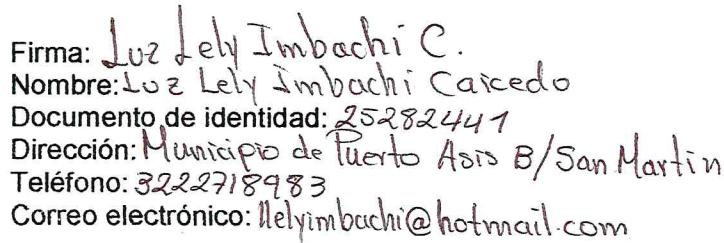 Firma: Luz Lely Imbachi C.
Nombre: Luz Lely Imbachi Caicedo
Documento de identidad: 25282441
Dirección: Municipio de Puerto Asis B/San Martin
Teléfono: 3222718983
Correo electrónico: llelyimbachi@hotmail.com